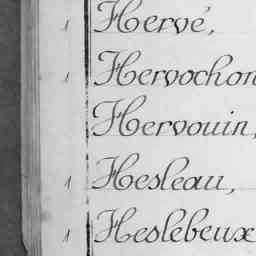 1 Hervé,
1 Hervochon
Hervouin,
1 Hesleau,
1 Heslebeux